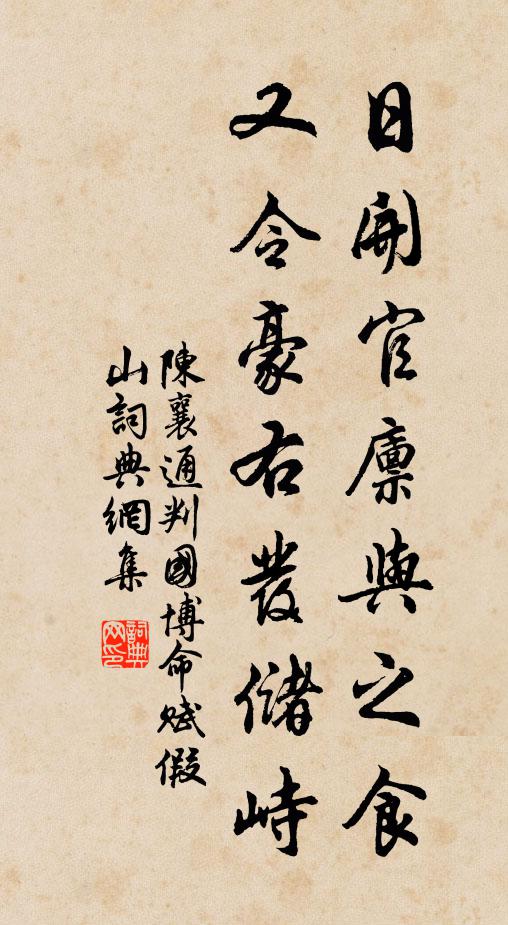 日開官廪與之食
又令豪右發儲峙
陳襄通判國博命賦假
山詞典網集
詞典
网印